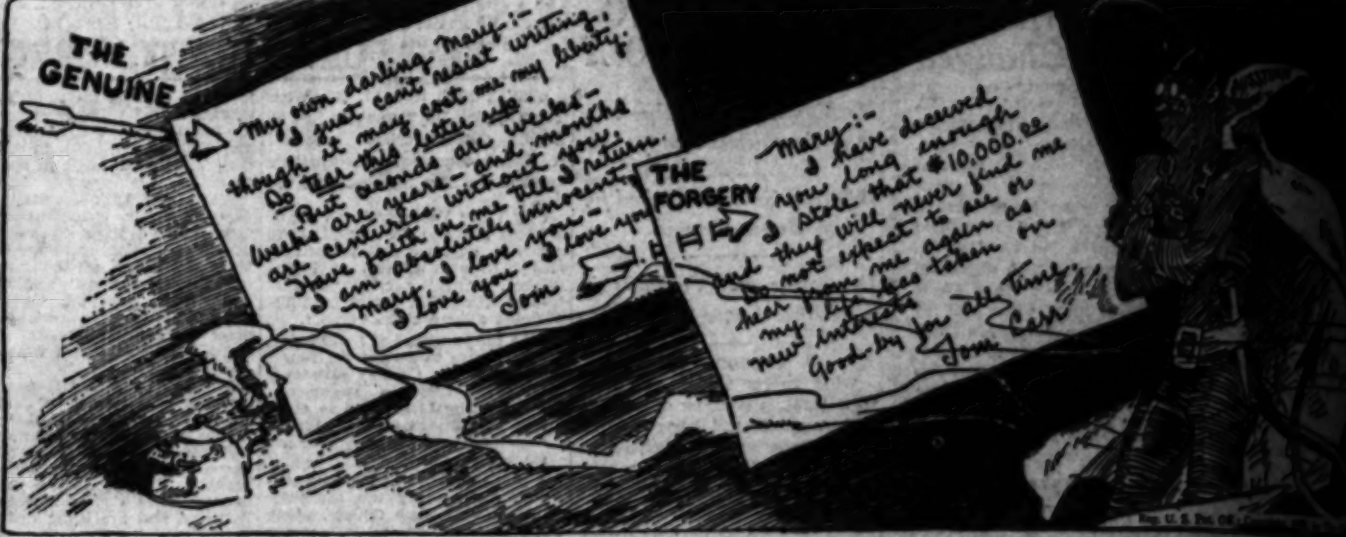 THE
GENUINE
My own darling Mary:-
I just can't resist writing,
though it may cost me my liberty.
Do tear this letter up.
But seconds are weeks-
weeks are years- and months
are centuries without you.
Have faith in me till I return.
I am absolutely innocent,
Mary, I love you- I love you
I love you- I love you-
Tom
THE
FORGERY
Mary:-
I have deceived
you long enough
I stole that $10,000.00
and they will never find me
Do not expect to see or
hear from me again as
my life has taken on
new interests
Good-by for all time,
Tom Carr
Reg. U. S. Pat. Off.